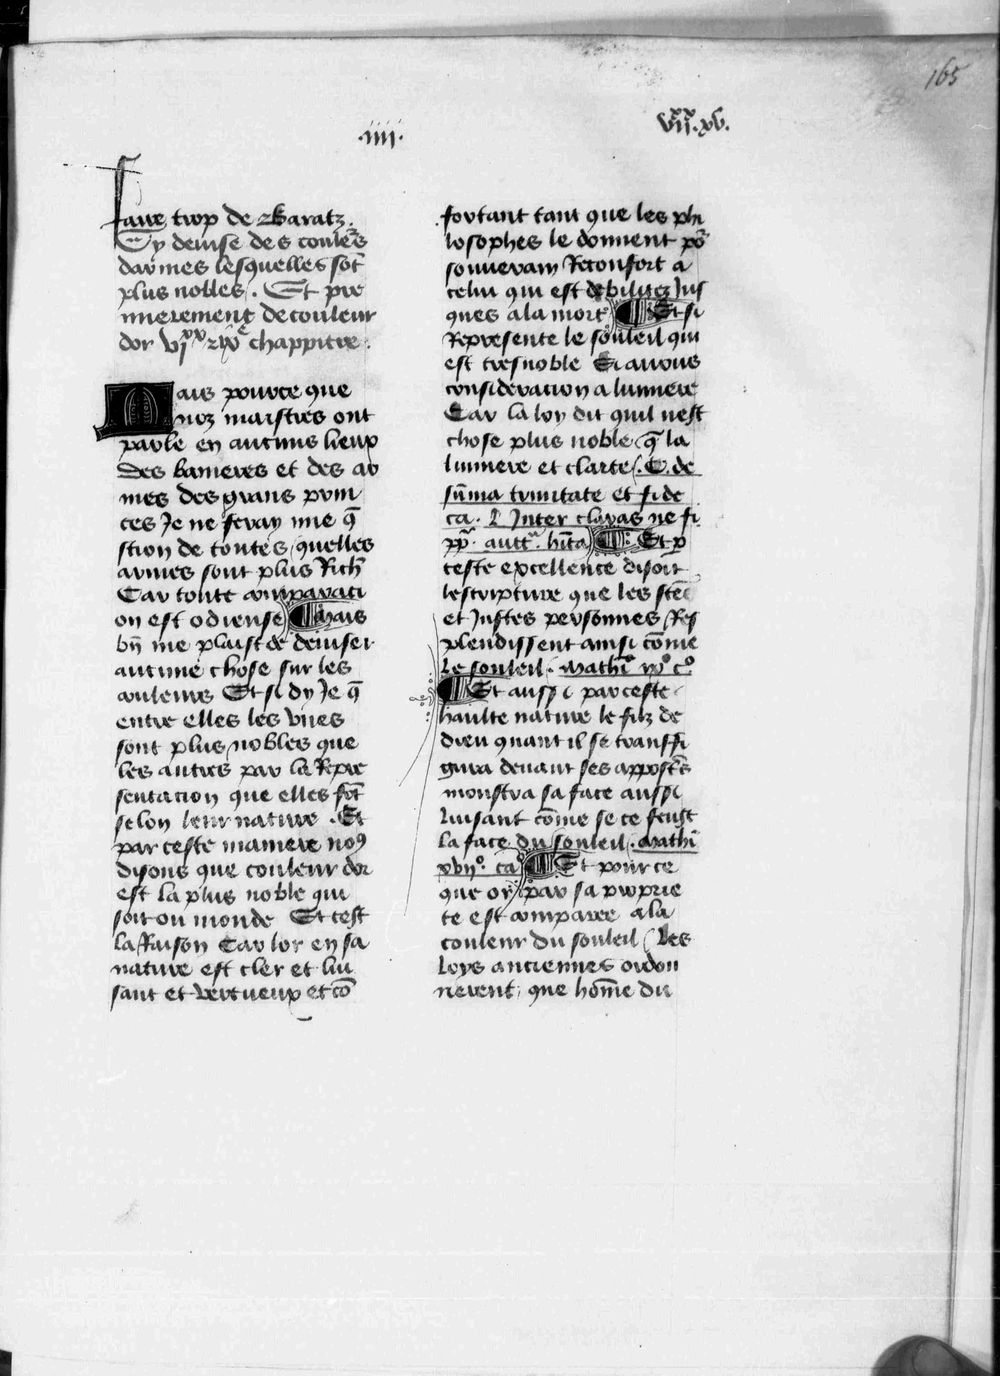 165
.iiii.
viixx.xv.
faire trop de Baratz.
Cy deuise des couleurs
darmes lesquelles sōt
plus nobles. Et pre
mierement de couleur
dor chappitre.
Mais pource que
noz maistres ont
parle en aucuns lieux
des banieres et des ar
mes des grans prin
ces Je ne feray mie q̄
stion de toutes quelles
armes sont plus Rich
Car toute comparaci
on est odieuse Mais
bn̄ me plaist de deuiser
aucune chose sur les
couleurs Et si dy Je q̄
entre elles les vnes
sont plus nobles que
les autres par la Repre
sentacion que elles fōt
selon leur nature. Et
par ceste maniere no9
disons que couleur dor
est la plus noble qui
soit ou monde Et cest
la Raison Car lor en sa
nature est cler et lui
sant et vertueux et cō
fortant tant que les phi
losophes le donnent po2
souuerain Reconfort a
celui qui est debilitez Jus
ques a la mort Et si
Represente le souleil qui
est tresnoble Et auons
consideracion a lumiere
Car la loy dit quil nest
chose plus noble q̄ la
lumiere et clarte. C. de
sūma trinitate et fide
ca. l. Inter claras ne fi
Et p
ceste excellence disoit
lescripture que les
et Justes personnes Res
plendissent ainsi cōme
Le souleil. Mathi
Et aussi par ceste
haulte nature le filz de
dieu quant il se transffi
gura deuant ses appostres
monstra sa face aussi
luisant cōme se ce feust
la face du souleil. Mathi
xvijo. ca Et pource
que or par sa proprie
te est comparee a la
couleur du souleil Les
Loys anciennes ordon
nerent que hōme du